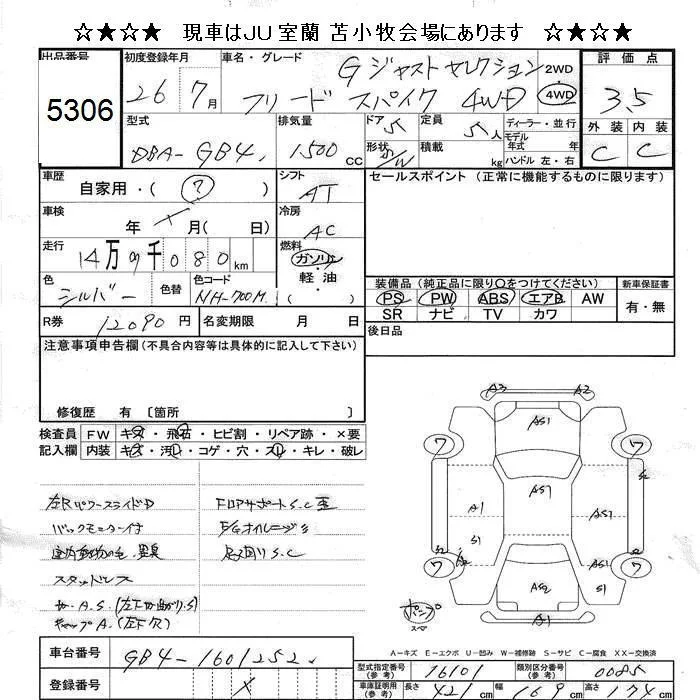 ☆★☆★ 現車はJU室蘭 苫小牧会場にあります ☆★☆★
出品番号 初度登録年月 車名・グレード 評価点
5306 26 7月 Gジャストセレクション 2WD 4WD 3.5
フリードスパイク 4WD
型式 排気量 ドア 定員 ディーラー・並行 外装 内装
DBA-GB4 1500 CC 5 5人 モデル年式 年式 C C
形状 積載 kg ハンドル 左・右
車歴 自家用・( ? ) シフト AT セールスポイント(正常に機能するものに限ります)
車検 年 月( 日) 冷房 AC
走行 14万9千080km 燃料 ガソリン・軽油
色 シルバー 色替 色コード NH-700M ( )
装備品(純正品に限り○をつけてください) 新車保証書
PS PW ABS エアB AW 有・無
SR ナビ TV カワ
R券 12090円 名変期限 月 日 後日品
注意事項申告欄(不具合内容等は具体的に記入して下さい)
修復歴 有〔箇所 〕
検査員 FW キズ・飛石・ヒビ割・リペア跡・×要
記入欄 内装 キズ・汚レ・コゲ・穴・スレ・キレ・破レ
左RパワースライドD フロアサポートS.C
バックモニター付 E/Gオイルニジミ
足廻りS.C
スタッドレス
A.S.
キャップA.(左下欠)
A3 A2
AS1
7 7
A1
S1
AS1
7 7
AS2
S1
A1
A-キズ E-エクボ U-凹み W-補修跡 S-サビ C-腐食 XX-交換済
車台番号 GB4-1601252
登録番号
型式指定番号(参考) 16101 類別区分番号(参考) 0085
車庫証明用(参考) 長さ 421cm 幅 169cm 高さ 174cm